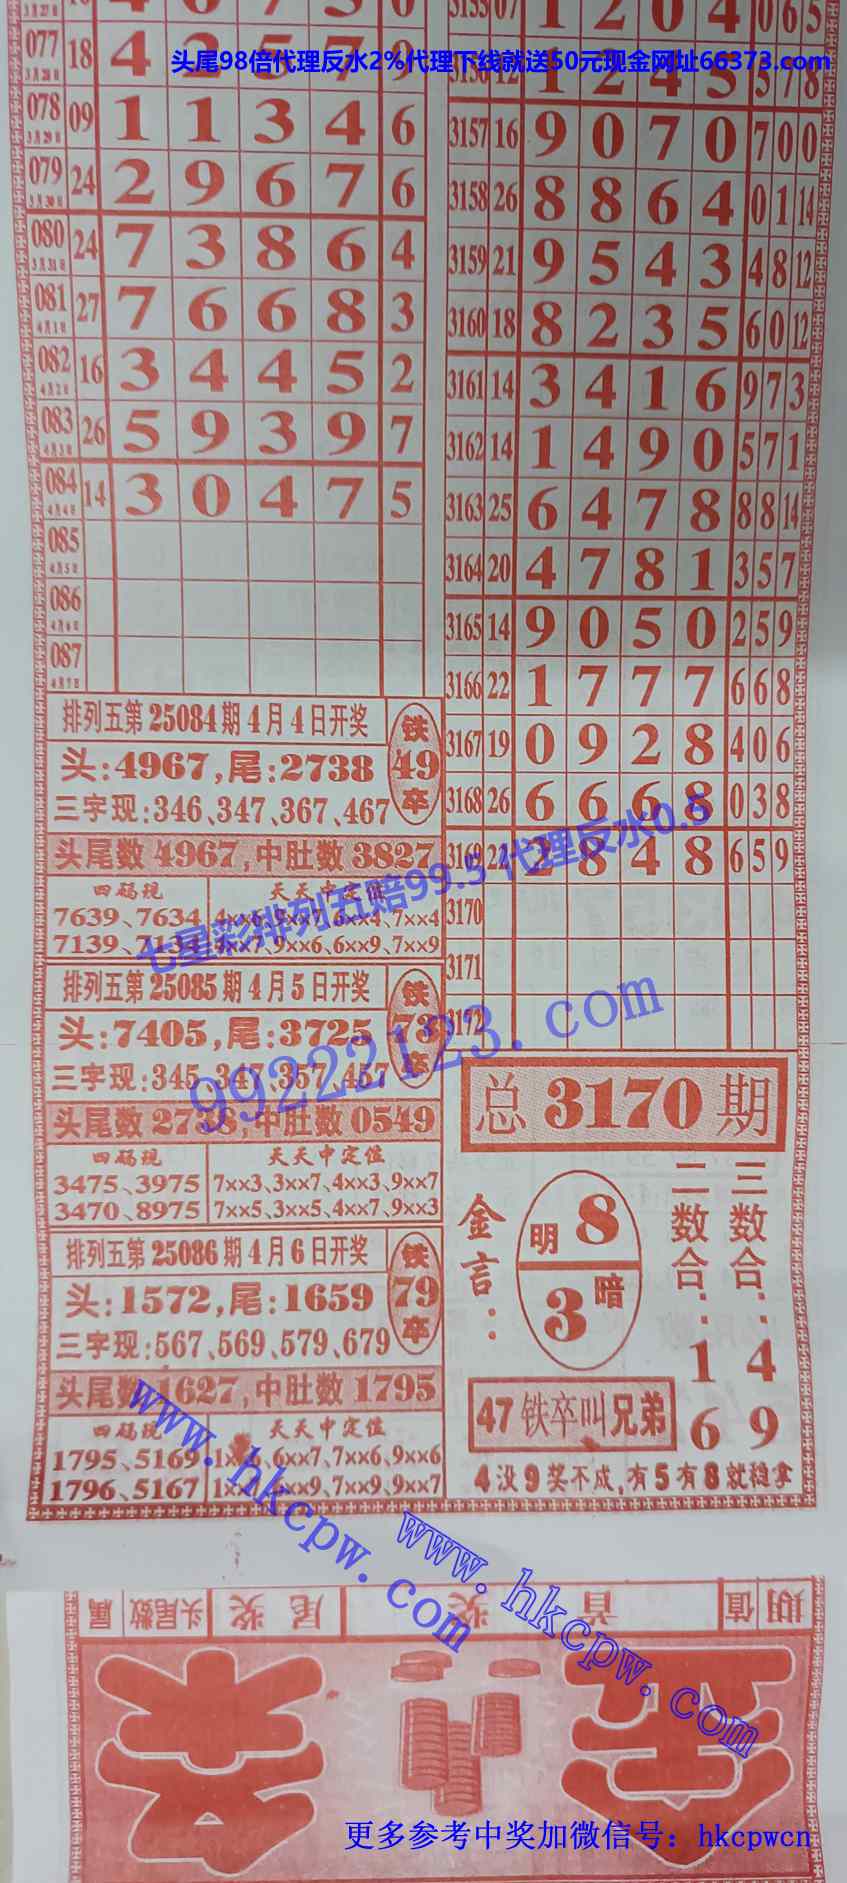 头尾98倍代理反水2%代理下线就送50元现金网址66373.com
077 3月28日 18 4 2 5 7 9
078 3月29日 09 1 1 3 4 6
079 3月30日 24 2 9 6 7 6
080 3月31日 24 7 3 8 6 4
081 4月1日 27 7 6 6 8 3
082 4月2日 16 3 4 4 5 2
083 4月3日 26 5 9 3 9 7
084 4月4日 14 3 0 4 7 5
085 4月5日
086 4月6日
087 4月7日
排列五第25084期4月4日开奖
头:4967,尾:2738
三字现:346、347、367、467
铁49卒
头尾数4967,中肚数3827
四码现 天天中定位
7639、7634 4××6、9××7、6××4、7××4
7139、7134 4××7、9××6、6××9、7××9
排列五第25085期4月5日开奖
头:7405,尾:3725
三字现:345、347、357、457
铁73卒
头尾数2738,中肚数0549
四码现 天天中定位
3475、3975 7××3、3××7、4××3、9××7
3470、8975 7××5、3××5、4××7、9××3
排列五第25086期4月6日开奖
头:1572,尾:1659
三字现:567、569、579、679
铁79卒
头尾数1627,中肚数1795
四码现 天天中定位
1795、5169 6××7、7××6、9××6
1796、5167 7××9、9××7
3155 07 1 2 0 4 0 6 5
3156 12 1 2 4 5 5 7 8
3157 16 9 0 7 0 7 0 0
3158 26 8 8 6 4 0 1 14
3159 21 9 5 4 3 4 8 12
3160 18 8 2 3 5 6 0 12
3161 14 3 4 1 6 9 7 3
3162 14 1 4 9 0 5 7 1
3163 25 6 4 7 8 8 8 14
3164 20 4 7 8 1 3 5 7
3165 14 9 0 5 0 2 5 9
3166 22 1 7 7 7 6 6 8
3167 19 0 9 2 8 4 0 6
3168 26 6 6 6 8 0 3 8
3169 22 2 8 4 8 6 5 9
3170
3171
3172
总3170期
金言:
明8
3暗
二数合:16
三数合:49
47铁卒叫兄弟
4没9奖不成,有5有8就稳拿
七星彩排列五赔99.5 代理反水0.5
99222123.com
www.hkcpw.com
www.hkcpw.com
期 值 首奖 尾奖 头尾数 属
更多参考中奖加微信号：hkcpwcn